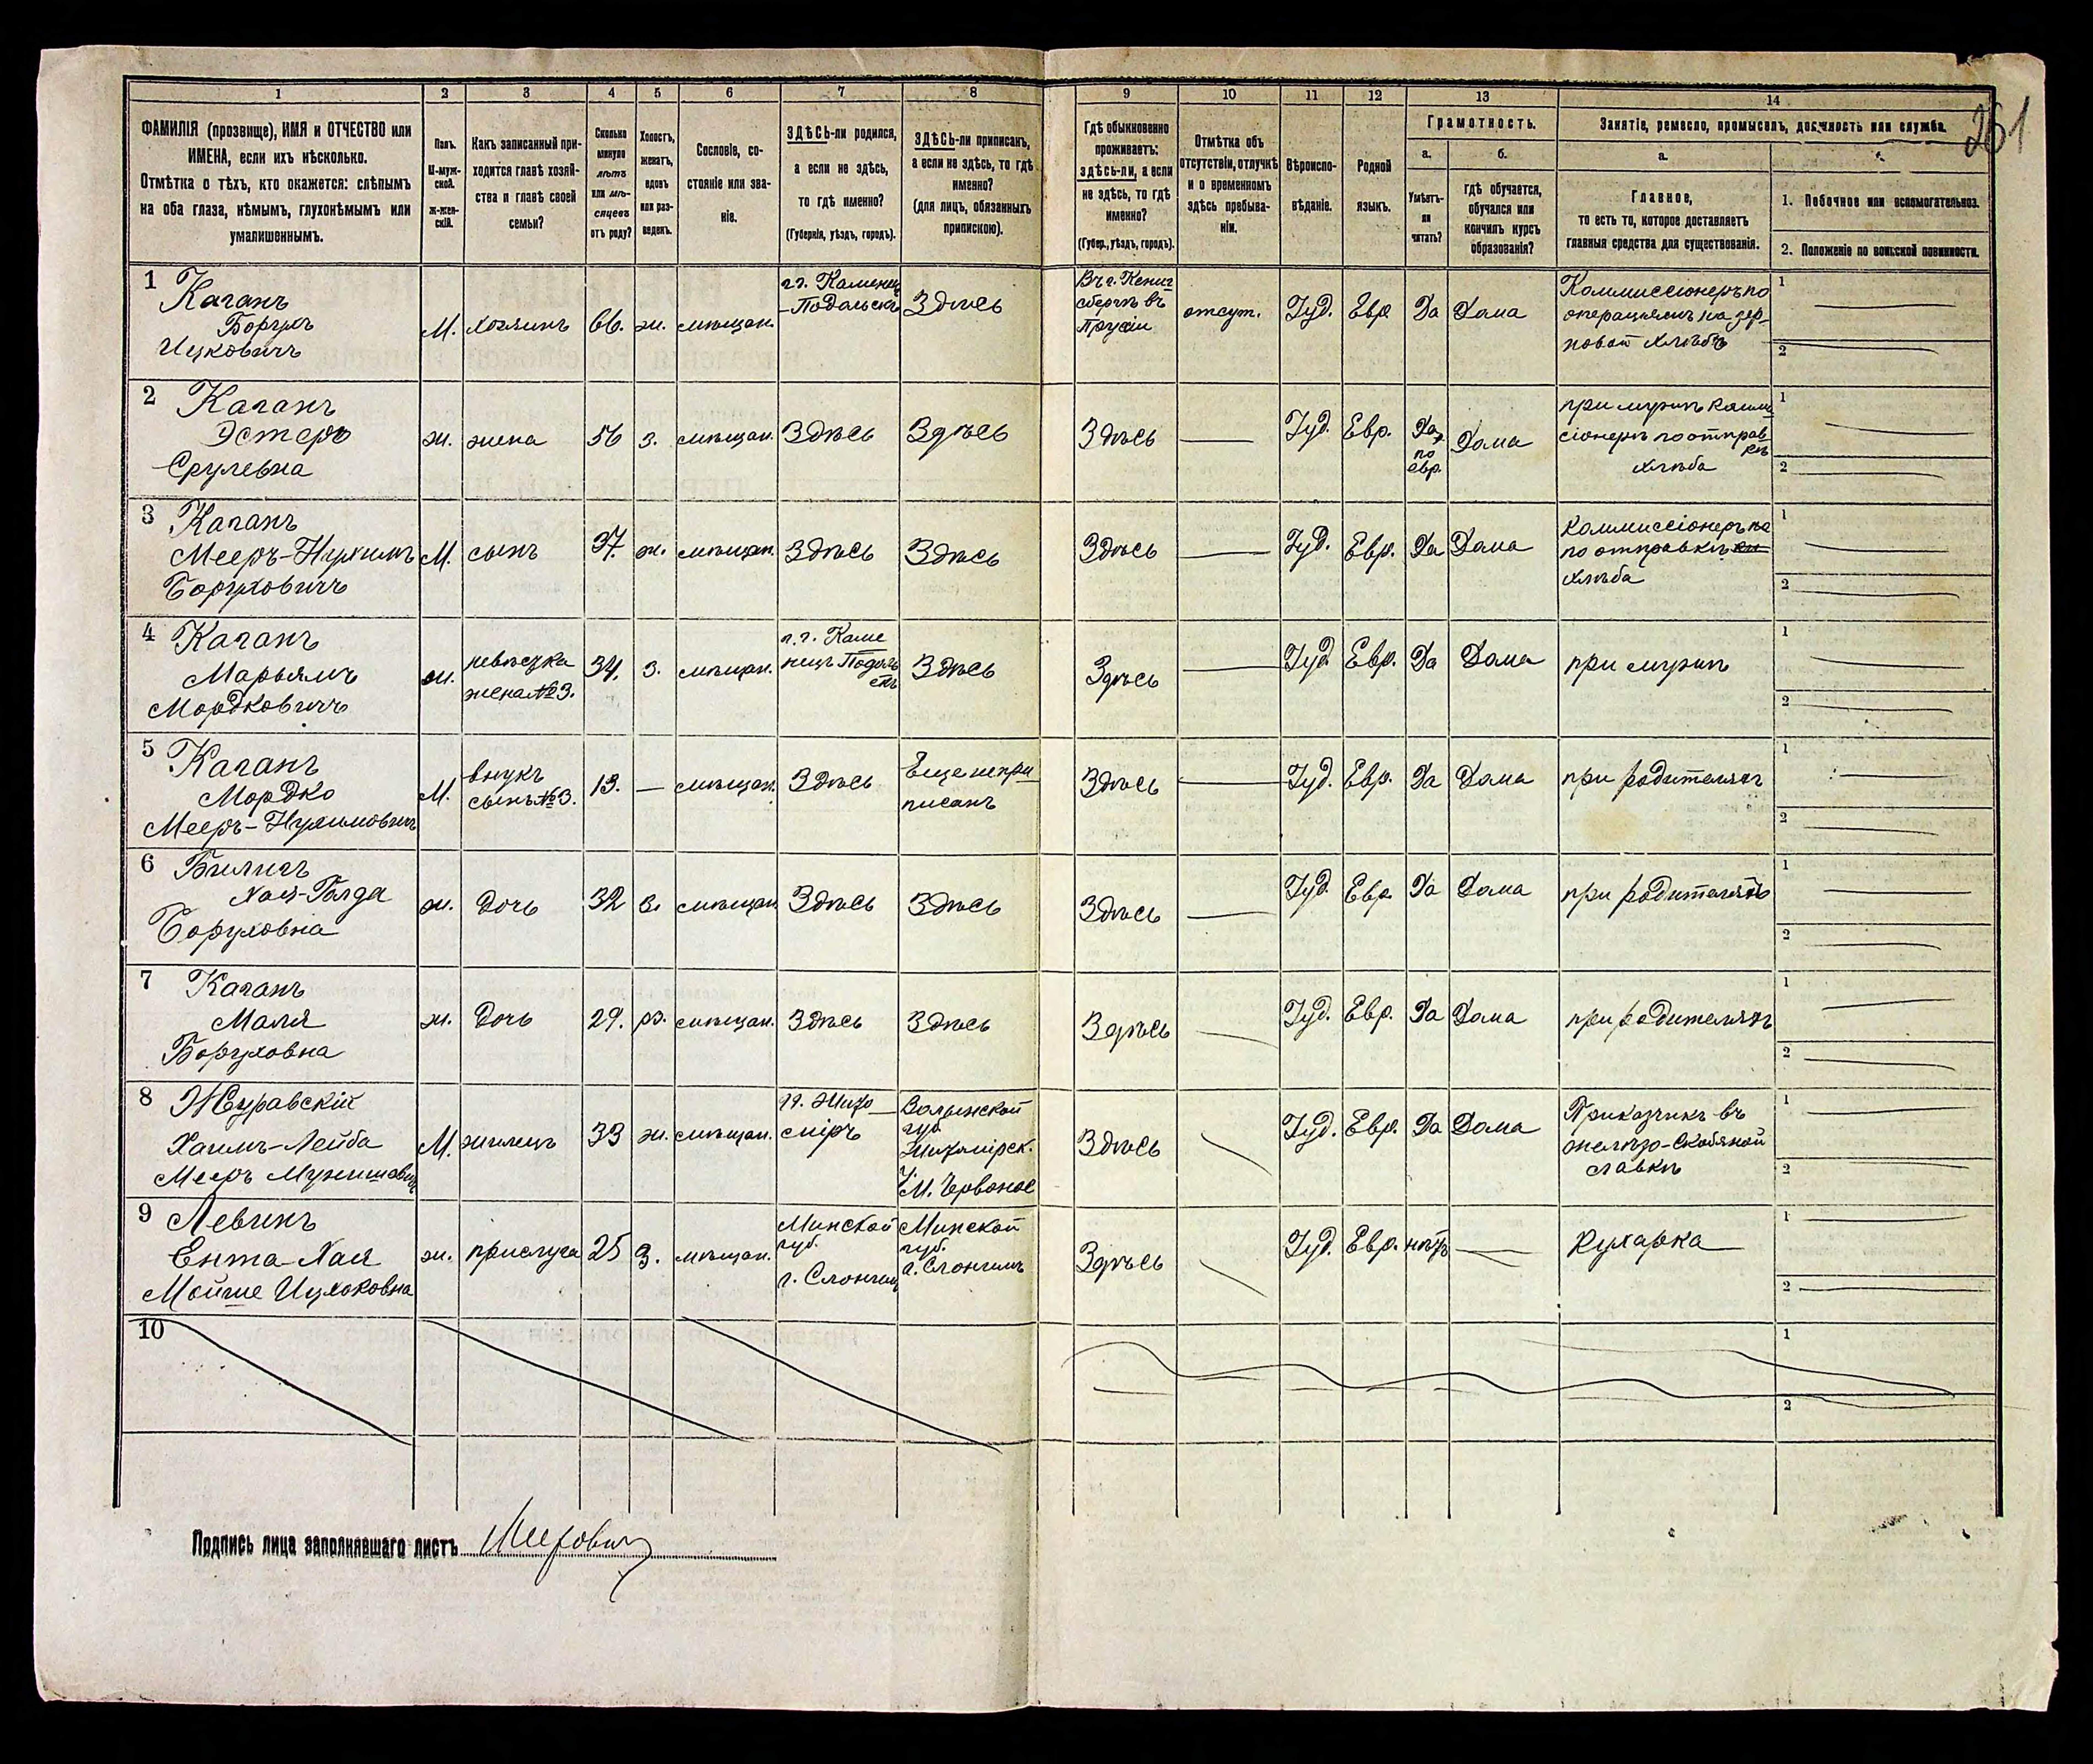 261
1
2
3
4
5
6
7
8
9
10
11
12
13
14
ФАМИЛІЯ (прозвище), ИМЯ и ОТЧЕСТВО или
ИМЕНА, если ихъ нѣсколько.
Отмѣтка о тѣхъ, кто окажется: слѣпымъ
на оба глаза, нѣмымъ, глухонѣмымъ или
умалишеннымъ.
Полъ.
М-муж-
ской.
Ж-жен-
скій.
Какъ записанный при-
ходится главѣ хозяй-
ства и главѣ своей
семьи?
Сколько
минуло
лѣтъ
или мѣ-
сяцевъ
отъ роду?
Холостъ,
женатъ,
вдовъ
или раз-
веденъ.
Сословіе, со-
стояніе или зва-
ніе.
ЗДѢСЬ-ли родился,
а если не здѣсь,
то гдѣ именно?
(Губернія, уѣздъ, городъ).
ЗДѢСЬ-ли приписанъ,
а если не здѣсь, то гдѣ
именно?
(для лицъ, обязанныхъ
припискою).
Гдѣ обыкновенно
проживаетъ:
здѣсь-ли, а если
не здѣсь, то гдѣ
именно?
(Губер., уѣздъ, городъ).
Отмѣтка объ
отсутствіи, отлучкѣ
и о временномъ
здѣсь пребыва-
ніи.
Вѣроиспо-
вѣданіе.
Родной
языкъ.
Грамотность.
а.
Умѣетъ-
ли
читать?
б.
Гдѣ обучается,
обучался или
кончилъ курсъ
образованія?
Занятіе, ремесло, промыселъ, должность или служба.
а.
Главное,
то есть то, которое доставляетъ
главныя средства для существованія.
1. Побочное или вспомогательное.
2. Положеніе по воинской повинности.
1
Каганъ
Борухъ
Ицковичъ
М.
хозяинъ
66.
ж.
мѣщан.
г. Каменец
-Подольскъ
Здѣсь
Въ г. Кениг
сбергѣ въ
Пруссіи
отсут.
Іуд.
Евр.
Да
Дома
Коммиссіонеръ по
операціямъ на зер-
новой хлѣбъ
1
2
2
Каганъ
Эстеръ
Срулевна
ж.
жена
56
з.
мѣщан.
Здѣсь
Здѣсь
Здѣсь
Іуд.
Евр.
Да,
по
евр.
Дома
при мужѣ комми
сіонерѣ по отправ
кѣ
хлѣба
1
2
3
Каганъ
Мееръ-Нухимъ
Боруховичъ
М.
сынъ
37.
ж.
мѣщан.
Здѣсь
Здѣсь
Здѣсь
Іуд.
Евр.
Да
Дома
Коммиссіонеръ
по отправкѣ
хлѣба
1
2
4
Каганъ
Марьямъ
Мордковичъ
ж.
невѣстка
жена № 3.
34.
з.
мѣщан.
г. Каме
нецъ Подоль
скъ
Здѣсь
Здѣсь
Іуд.
Евр.
Да
Дома
при мужѣ
1
2
5
Каганъ
Мордко
Мееръ-Нухимовичъ
М.
внукъ
сынъ № 3.
13.
—
мѣщан.
Здѣсь
Еще непри
писанъ
Здѣсь
Іуд.
Евр.
Да
Дома
при родителяхъ
1
2
6
Билигъ
Хая-Голда
Боруховна
ж.
дочь
32
в.
мѣщан.
Здѣсь
Здѣсь
Здѣсь
Іуд.
Евр.
Да
Дома
при родителяхъ
1
2
7
Каганъ
Маля
Боруховна
ж.
дочь
29.
рз.
мѣщан.
Здѣсь
Здѣсь
Здѣсь
Іуд.
Евр.
Да
Дома
при родителяхъ
1
2
8
Журавскій
Хаимъ-Лейба
Мееръ Мунишовичъ
М.
жилецъ
33
ж.
мѣщан.
г. Жито
міръ
Волынской
губ.
Житомірск.
у.
М. Червоное
Здѣсь
Іуд.
Евр.
Да
Дома
Приказчикъ въ
желѣзо-скобяной
лавкѣ
1
2
9
Левинъ
Ента-Хая
Мойше Ицхоковна
ж.
прислуга
25
з.
мѣщан.
Минской
губ.
г. Слонимъ
Минской
губ.
г. Слонимъ
Здѣсь
Іуд.
Евр.
нѣтъ
Кухарка
1
2
10
1
2
Подпись лица заполнявшаго листъ